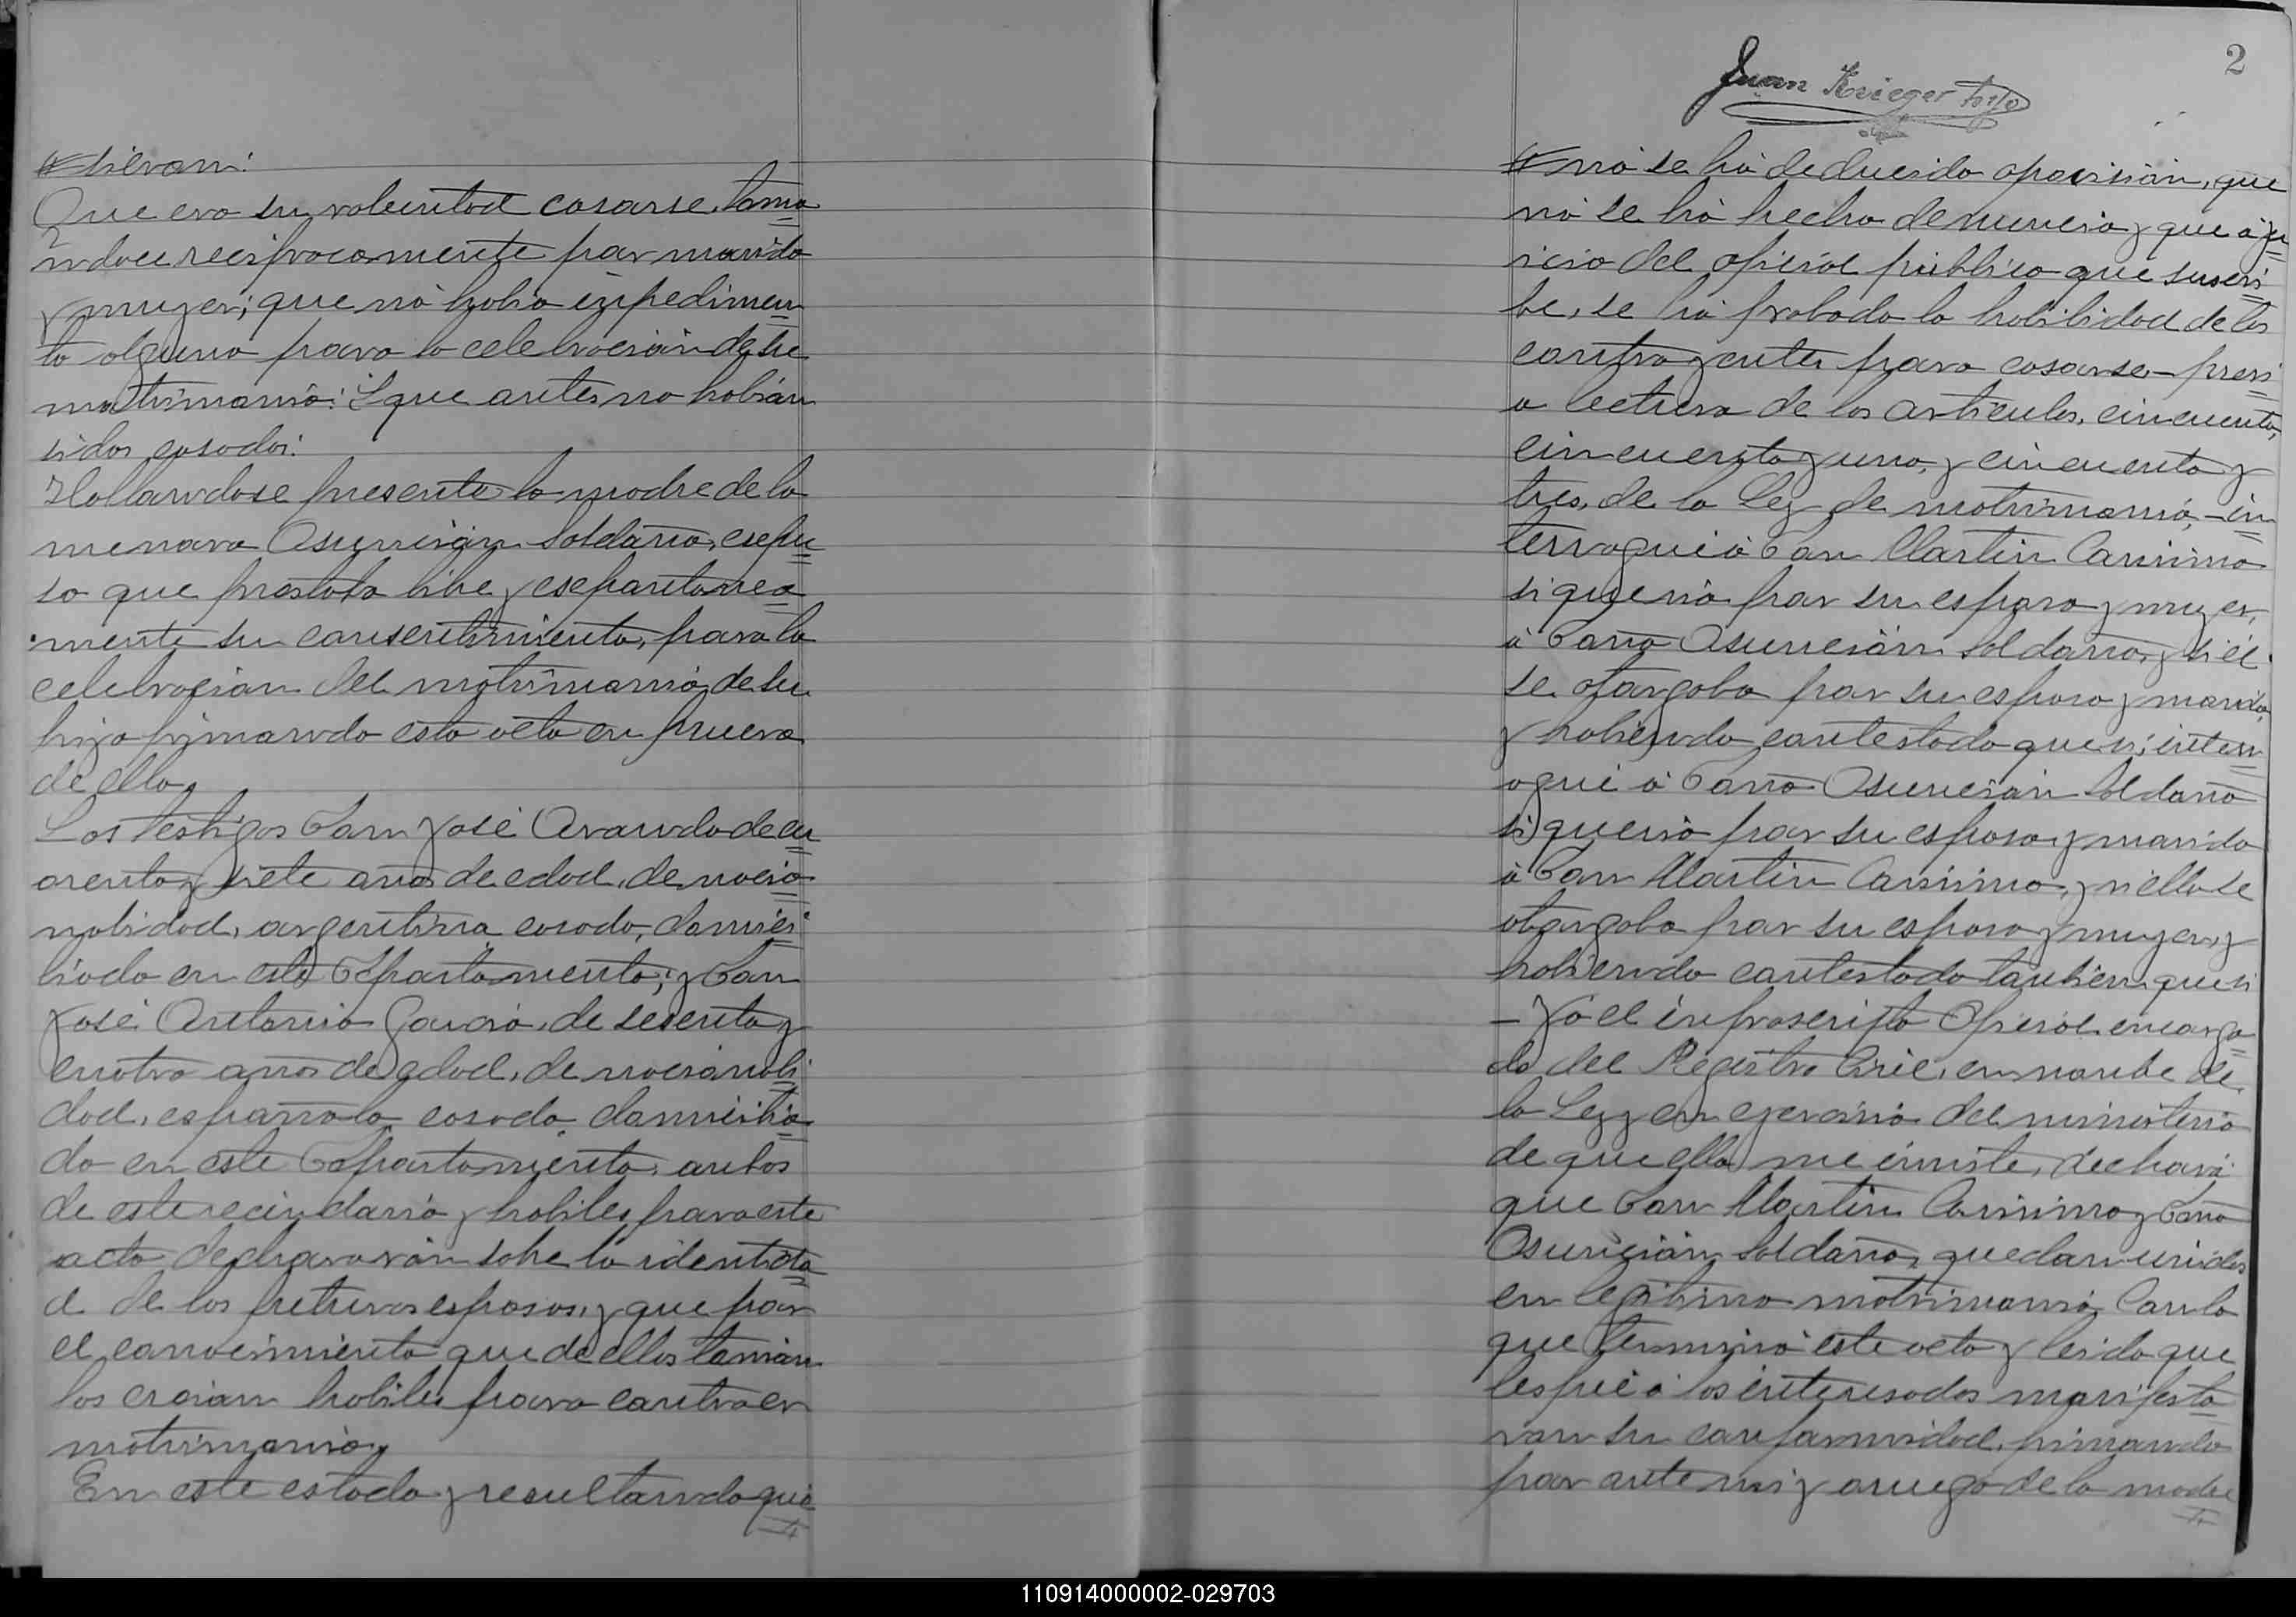 sieron:
Que era su voluntad casarse, toma
ndoce reciprocamente por marido
y muger; que nó habia inpedimen
to alguno para la celebración de su
matrimonió: Y que antes no habián
sidos casados:
Hallandose presente la madre de la
menora Asunción Soldaño, expu
so que prestaba libre y espontanea
mente su consentimiento, para la
celebración del matrimonió, de su
hija firmando esta acta en prueva
de ello,
Los testigos Don José Arando de cu
arenta y siete años de edad, de nacio
nalidad, argentina, casado, domici
liado en este Departamento; y Don
José Antonio Garcia, de sesenta y
cuatro años de edad, de nacionali
dad, española, casado, domicilia
do en este Departamento, anbos
de este vecindario y habiles para este
acto declararon sobre la identida
d de los futuros esposos, y que por
el conocimiento que de ellos tenian
los creian habiles para contraer
matrimonio,
En este estado y resultando que
2
Juan Krieger hijo
nó se há deducido oposición, que
nó se há hecho denuncia y que á ju
icio del oficial público que suscri
be, se há probado la habilidad de los
contrayentes para casarse – previ
a lectura de los articulos, cincuenta,
cincuenta y uno, y cincuenta y
tres, de la Ley de matrimonió, – in
terrogué á Don Martin
si queria por su esposa y muger,
á Doña Asunción Soldaño, y si él
se otorgaba por su esposo y marido,
y habiendo contestado que si; interr
ogué á Doña Asunción Soldaño
si queriá por su esposo y marido
á Don Martin y si ella se
otorgaba por su esposa y muger, y
habiendo contestado tanbien que si
– Yo el infrascripto Oficial encarga
do del Registro Civil, en nonbe de
la Ley y en ejercicio del ministerio
de que ella me inviste, declaró
que Don Martin y Doña
Asunción Soldaño, quedan unidos
en legitimo matrimonió, Con lo
que terminó este acto y leida que
les fué á los interesados manifesta
ron su conformidad, firmando
por ante mi y a ruego de la madre
110914000002-029703